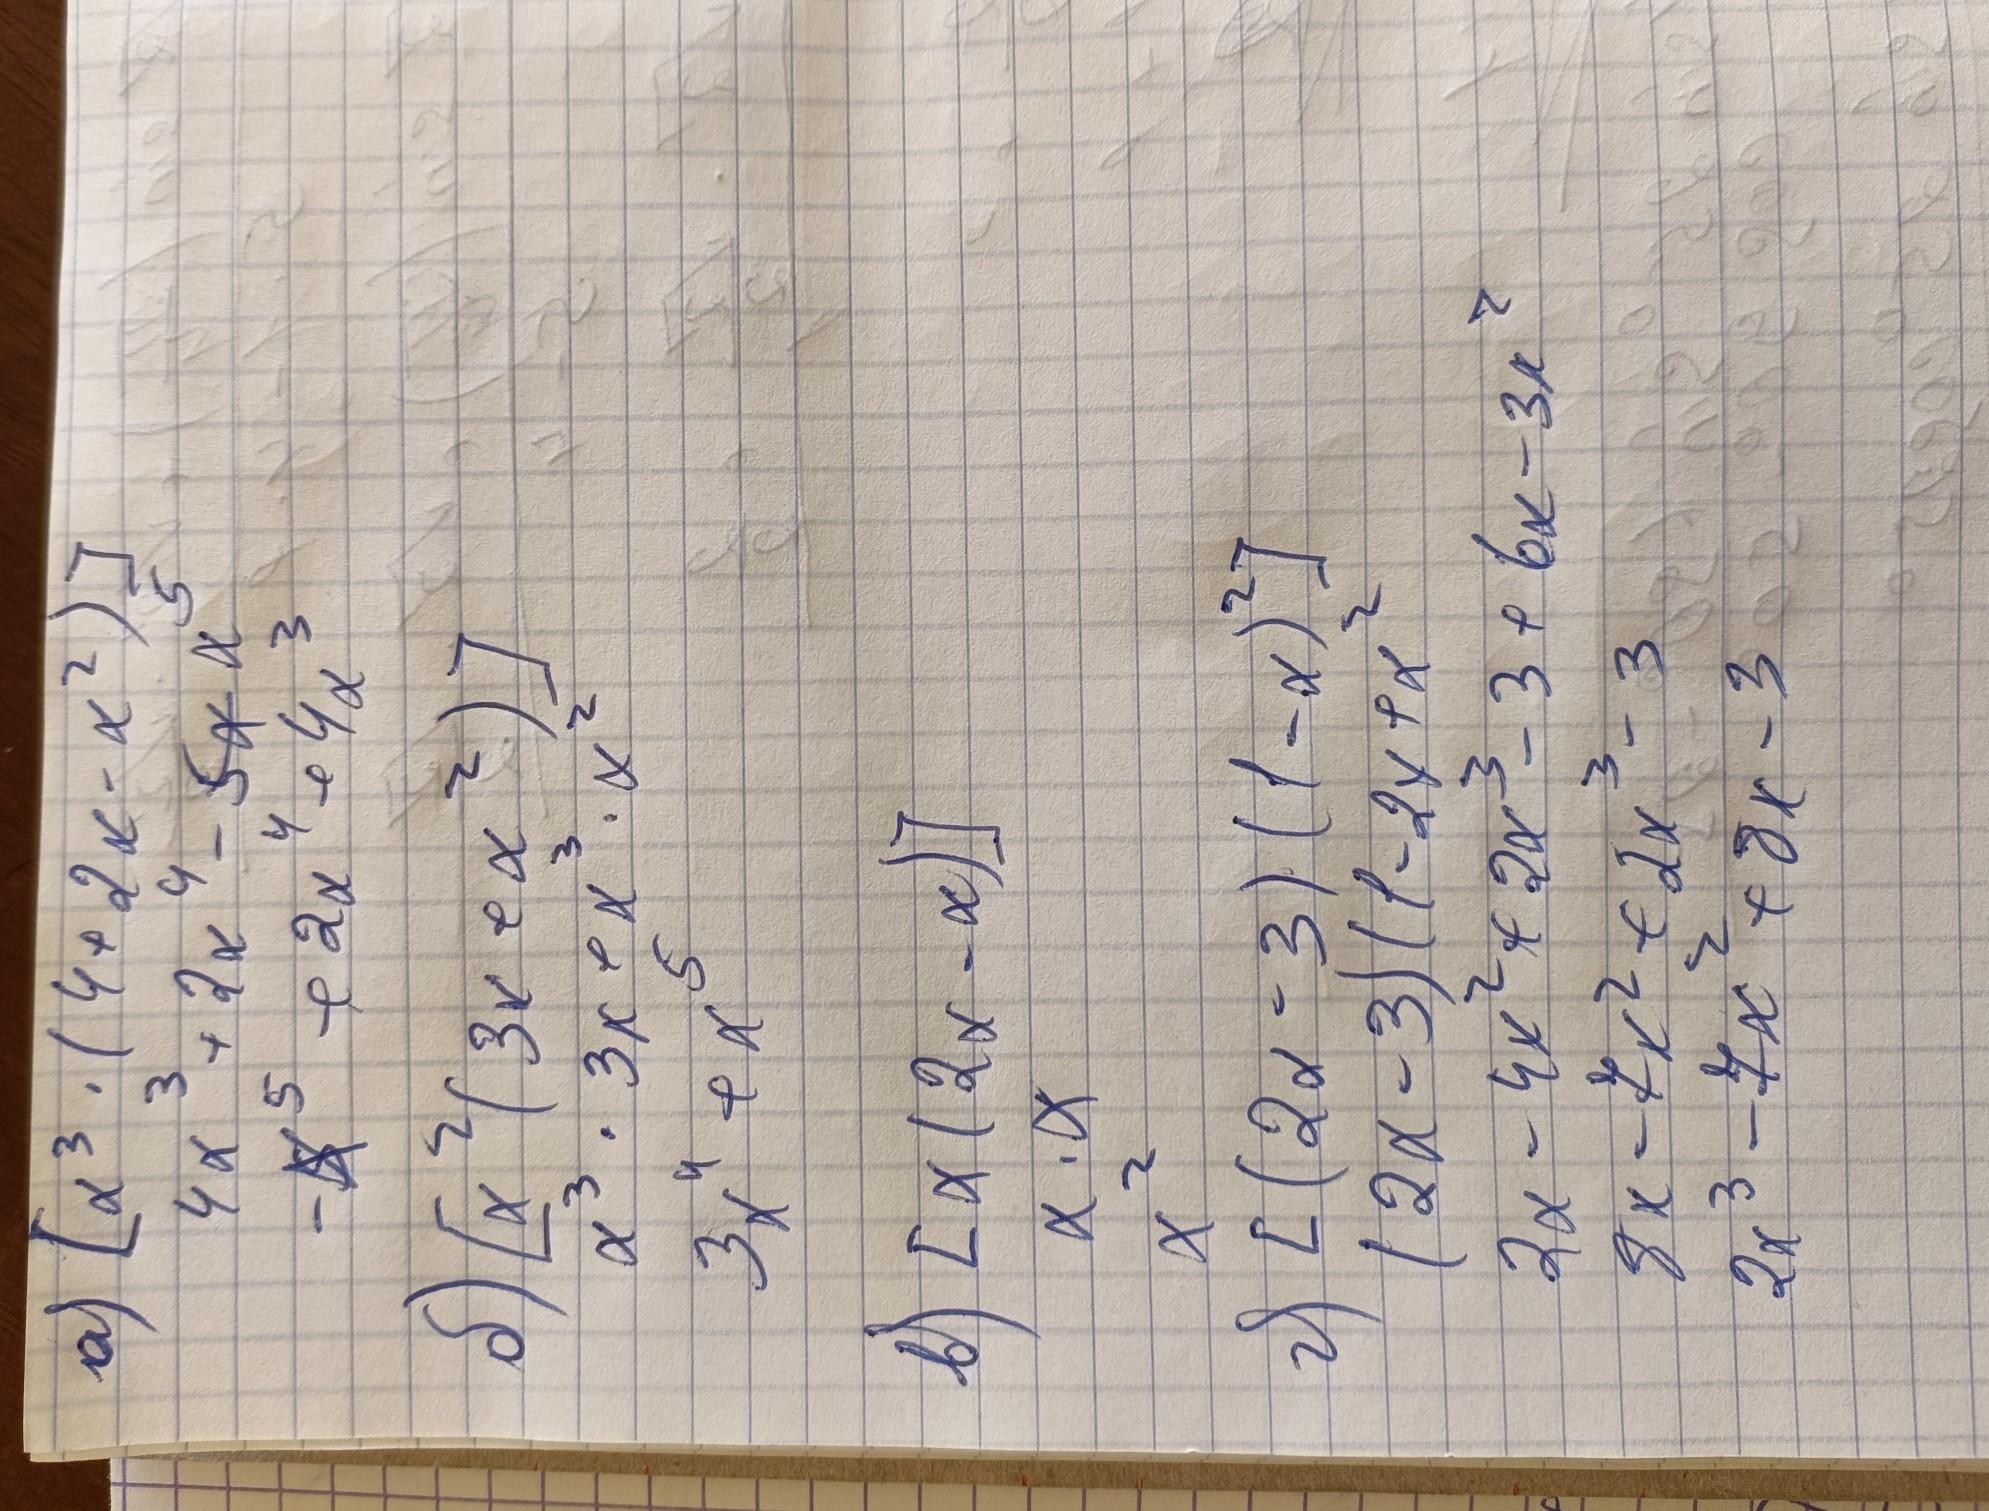 а) [x³ · (4 + 2x - x²)]
4x³ + 2x⁴ - x⁵
-x⁵ + 2x⁴ + 4x³
б) [x²(3x + x²)]
x³ · 3x + x³ · x²
3x⁴ + x⁵
в) [x(2x - x)]
x · x
x²
г) [(2x - 3)(1 - x)²]
(2x - 3)(1 - 2x + x²
2x - 4x² + 2x³ - 3 + 6x - 3x²
8x - 7x² + 2x³ - 3
2x³ - 7x² + 8x - 3